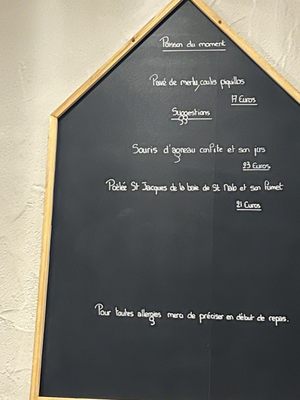 Poisson du moment
Pavé de merlu, coulis piquillos
17 Euros
Suggestions
Souris d'agneau confite et son jus
23 Euros
Poêlée St Jacques de la baie de St Malo et son fumet
21 Euros
Pour toutes allergies merci de préciser en début de repas.